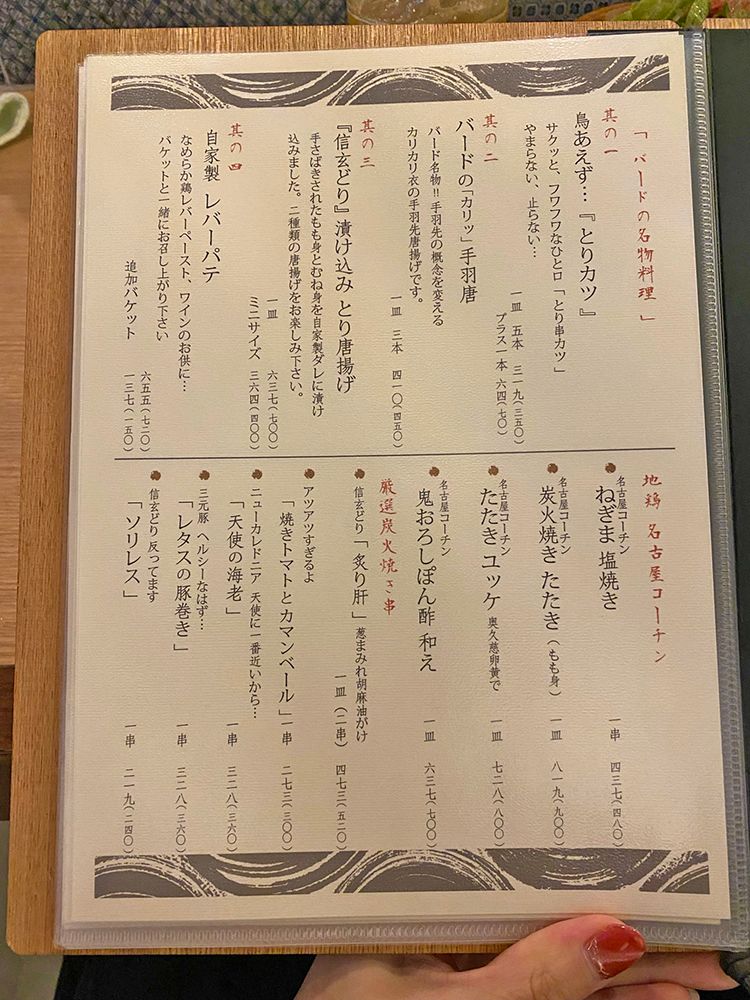 「 バードの名物料理 」
其の一
鳥あえず…『とりカツ』
サクッと、フワフワなひと口「とり串カツ」
やまらない、止らない…
一皿 五本 三一九(三五〇)
プラス一本 六四(七〇)
其の二
バードの「カリッ」手羽唐
バード名物!!手羽先の概念を変える
カリカリ衣の手羽先唐揚げです。
一皿 三本 四一〇(四五〇)
其の三
『信玄どり』漬け込み とり唐揚げ
手さばきされたもも身とむね身を自家製ダレに漬け
込みました。二種類の唐揚げをお楽しみ下さい。
一皿 六三七(七〇〇)
ミニサイズ 三六四(四〇〇)
其の四
自家製 レバーパテ
なめらか鶏レバーペースト、ワインのお供に…
バケットと一緒にお召し上がり下さい
六五五(七二〇)
追加バケット 一三七(一五〇)
地鶏 名古屋コーチン
名古屋コーチン
ねぎま 塩焼き 一串 四三七(四八〇)
名古屋コーチン
炭火焼き たたき(もも身) 一皿 八一九(九〇〇)
名古屋コーチン
たたき ユッケ 奥久慈卵黄で 一皿 七二八(八〇〇)
名古屋コーチン
鬼おろしぽん酢 和え 一皿 六三七(七〇〇)
厳選炭火焼き串
信玄どり「炙り肝」葱まみれ胡麻油がけ
一皿(二串) 四七三(五二〇)
アツアツすぎるよ
「焼きトマトとカマンベール」一串 二七三(三〇〇)
ニューカレドニア 天使に一番近いから…
「天使の海老」 一串 三二八(三六〇)
三元豚 ヘルシーなはず…
「レタスの豚巻き」 一串 三二八(三六〇)
信玄どり 反ってます
「ソリレス」 一串 二一九(二四〇)